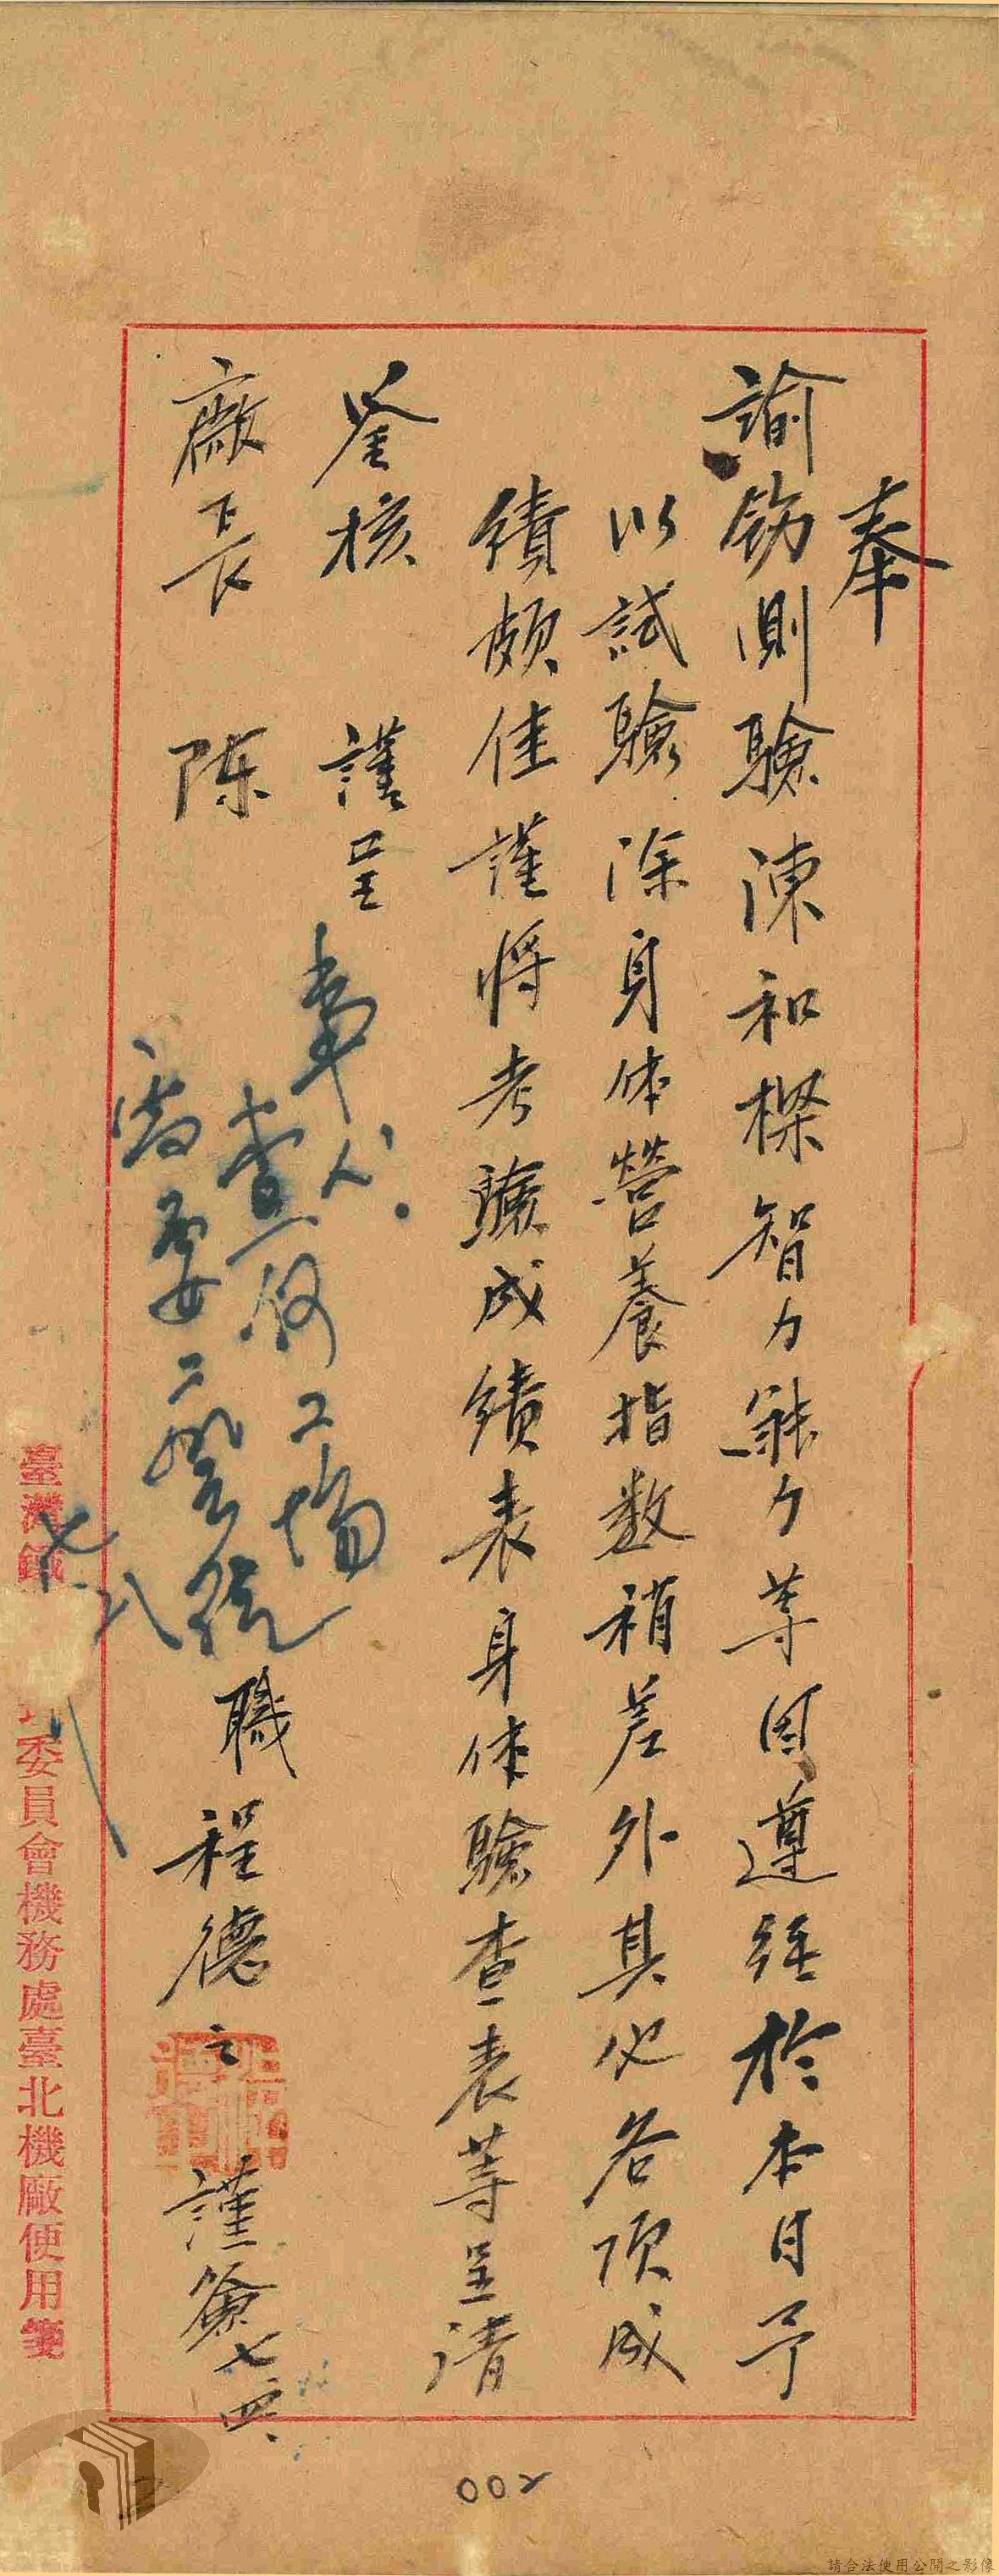 奉
諭飭測驗陳和樑智力能力等因遵經於本日予
以試驗除身体營養指数稍差外其他各項成
績頗佳謹將考驗成績表身体驗查表等呈請
鉴核 謹呈
廠長 陳
查何工場
需要
七八
職程德之謹簽七四
臺灣鐵 委員會機務處臺北機廠便用箋
002
請合法使用公開之影像